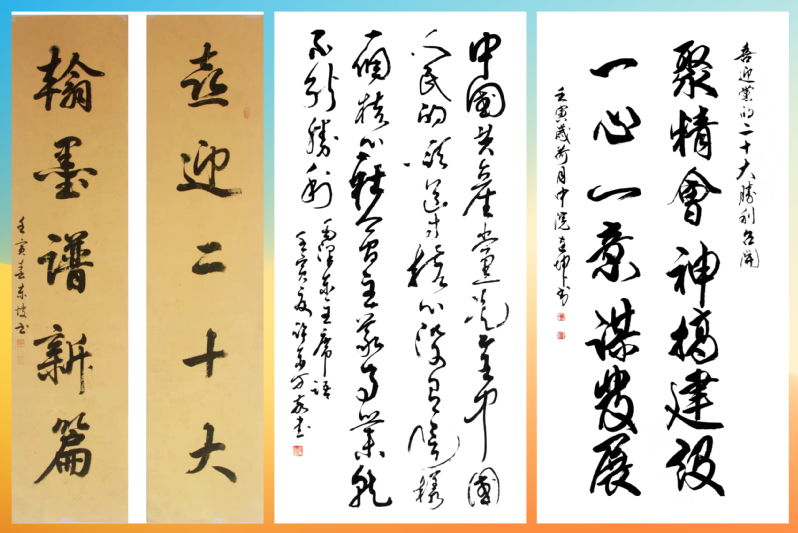 喜迎二十大
翰墨谱新篇
壬寅春东坡书
中國共產黨是全中國
人民的领导核心没有這樣
一個核心社會主義事業就
不能勝利
毛澤东主席语
壬寅夏
喜迎党的二十大勝利召開
聚精會神搞建設
一心一意謀發展
壬寅歲荷月中院